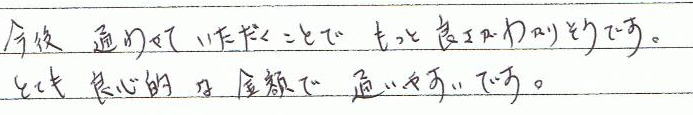 今後 通わせていただくことで もっと良さがわかりそうです。
とても良心的な金額で 通いやすいです。